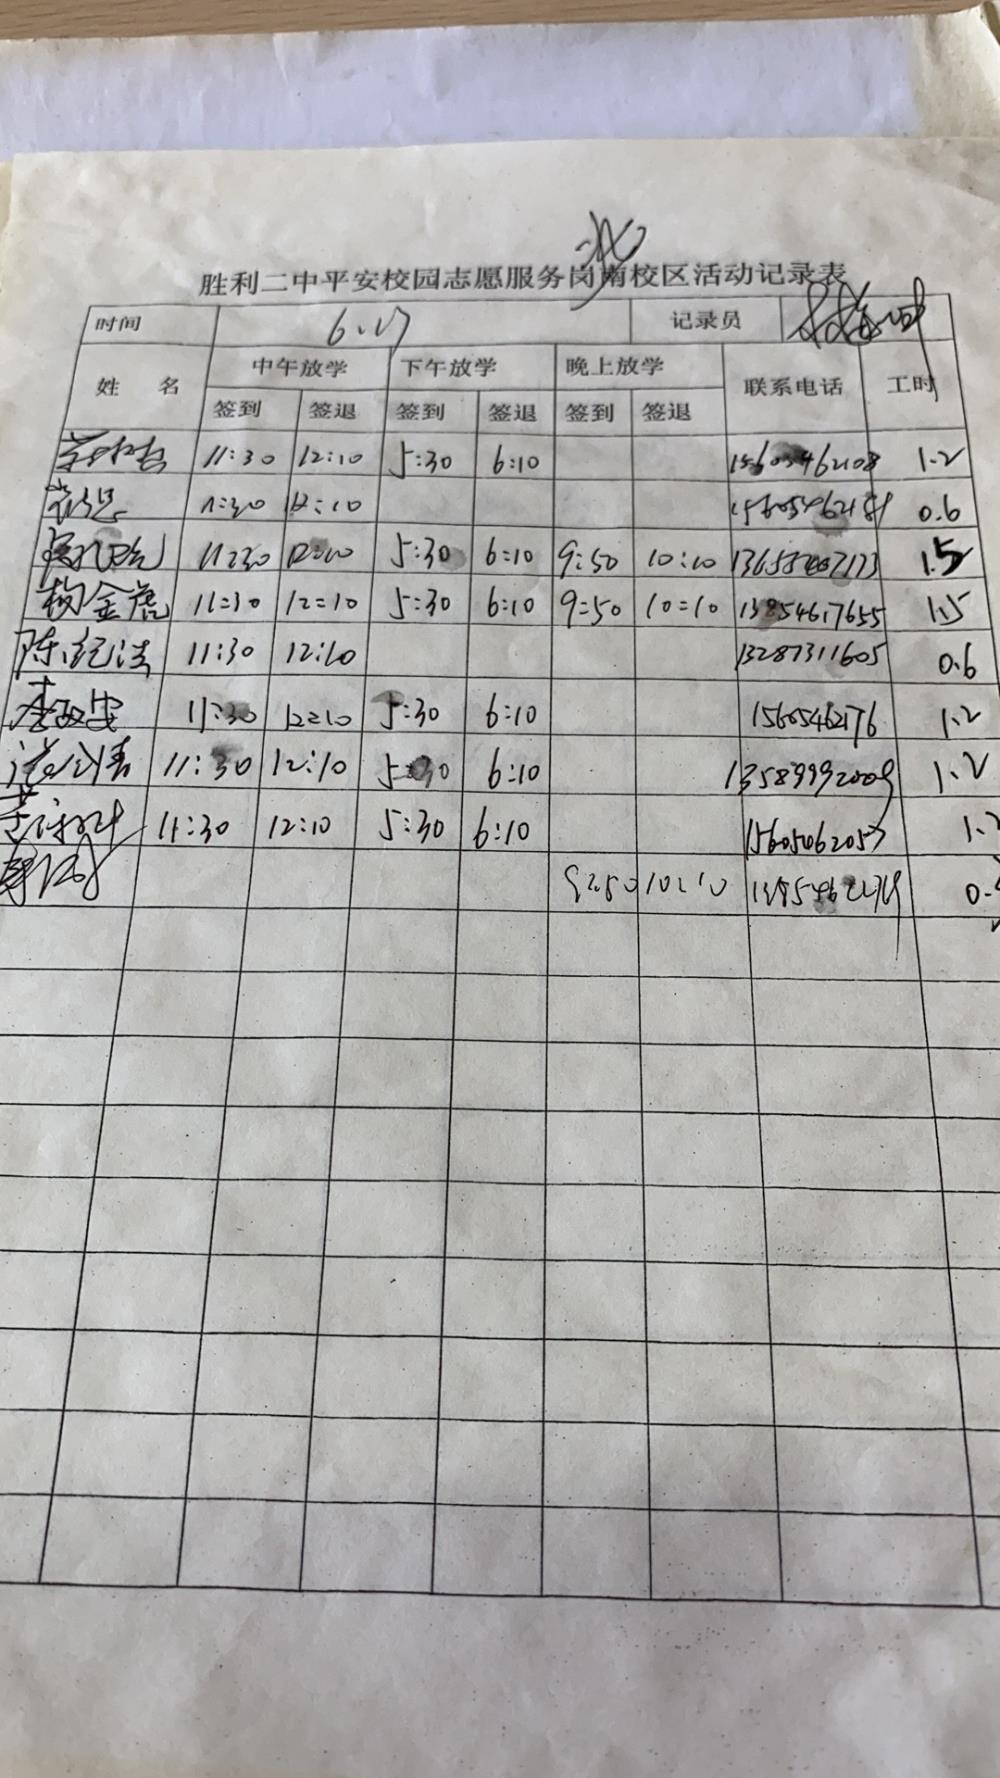 北
胜利二中平安校园志愿服务岗南校区活动记录表
时间 6.17 记录员
姓 名 中午放学 下午放学 晚上放学 联系电话 工时
签到 签退 签到 签退 签到 签退
11:30 12:10 5:30 6:10 15605462108 1.2
11:30 12:10 0.6
11:30 12:10 5:30 6:10 9:50 10:10 1.5
杨金虎 11:30 12:10 5:30 6:10 9:50 10:10 13854617655 1.5
陈纪法 11:30 12:10 13287311605 0.6
11:30 12:10 5:30 6:10 15605462176 1.2
11:30 12:10 5:30 6:10 13589992009 1.2
11:30 12:10 5:30 6:10 15605062057
9:50 10:10